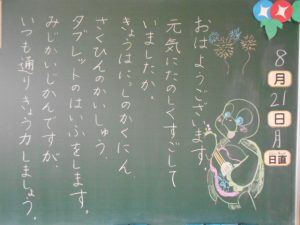 おはようございます。
元気にたのしくすごして
いましたか。
きょうはにっしのかくにん、
さくひんのかいしゅう、
タブレットのはいふをします。
みじかいじかんですが、
いつも通りきょう力しましょう。
8月21日月
日直